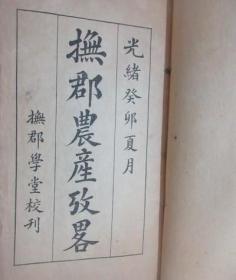 光緒癸卯夏月
撫郡農産攷畧
撫郡學堂校刊